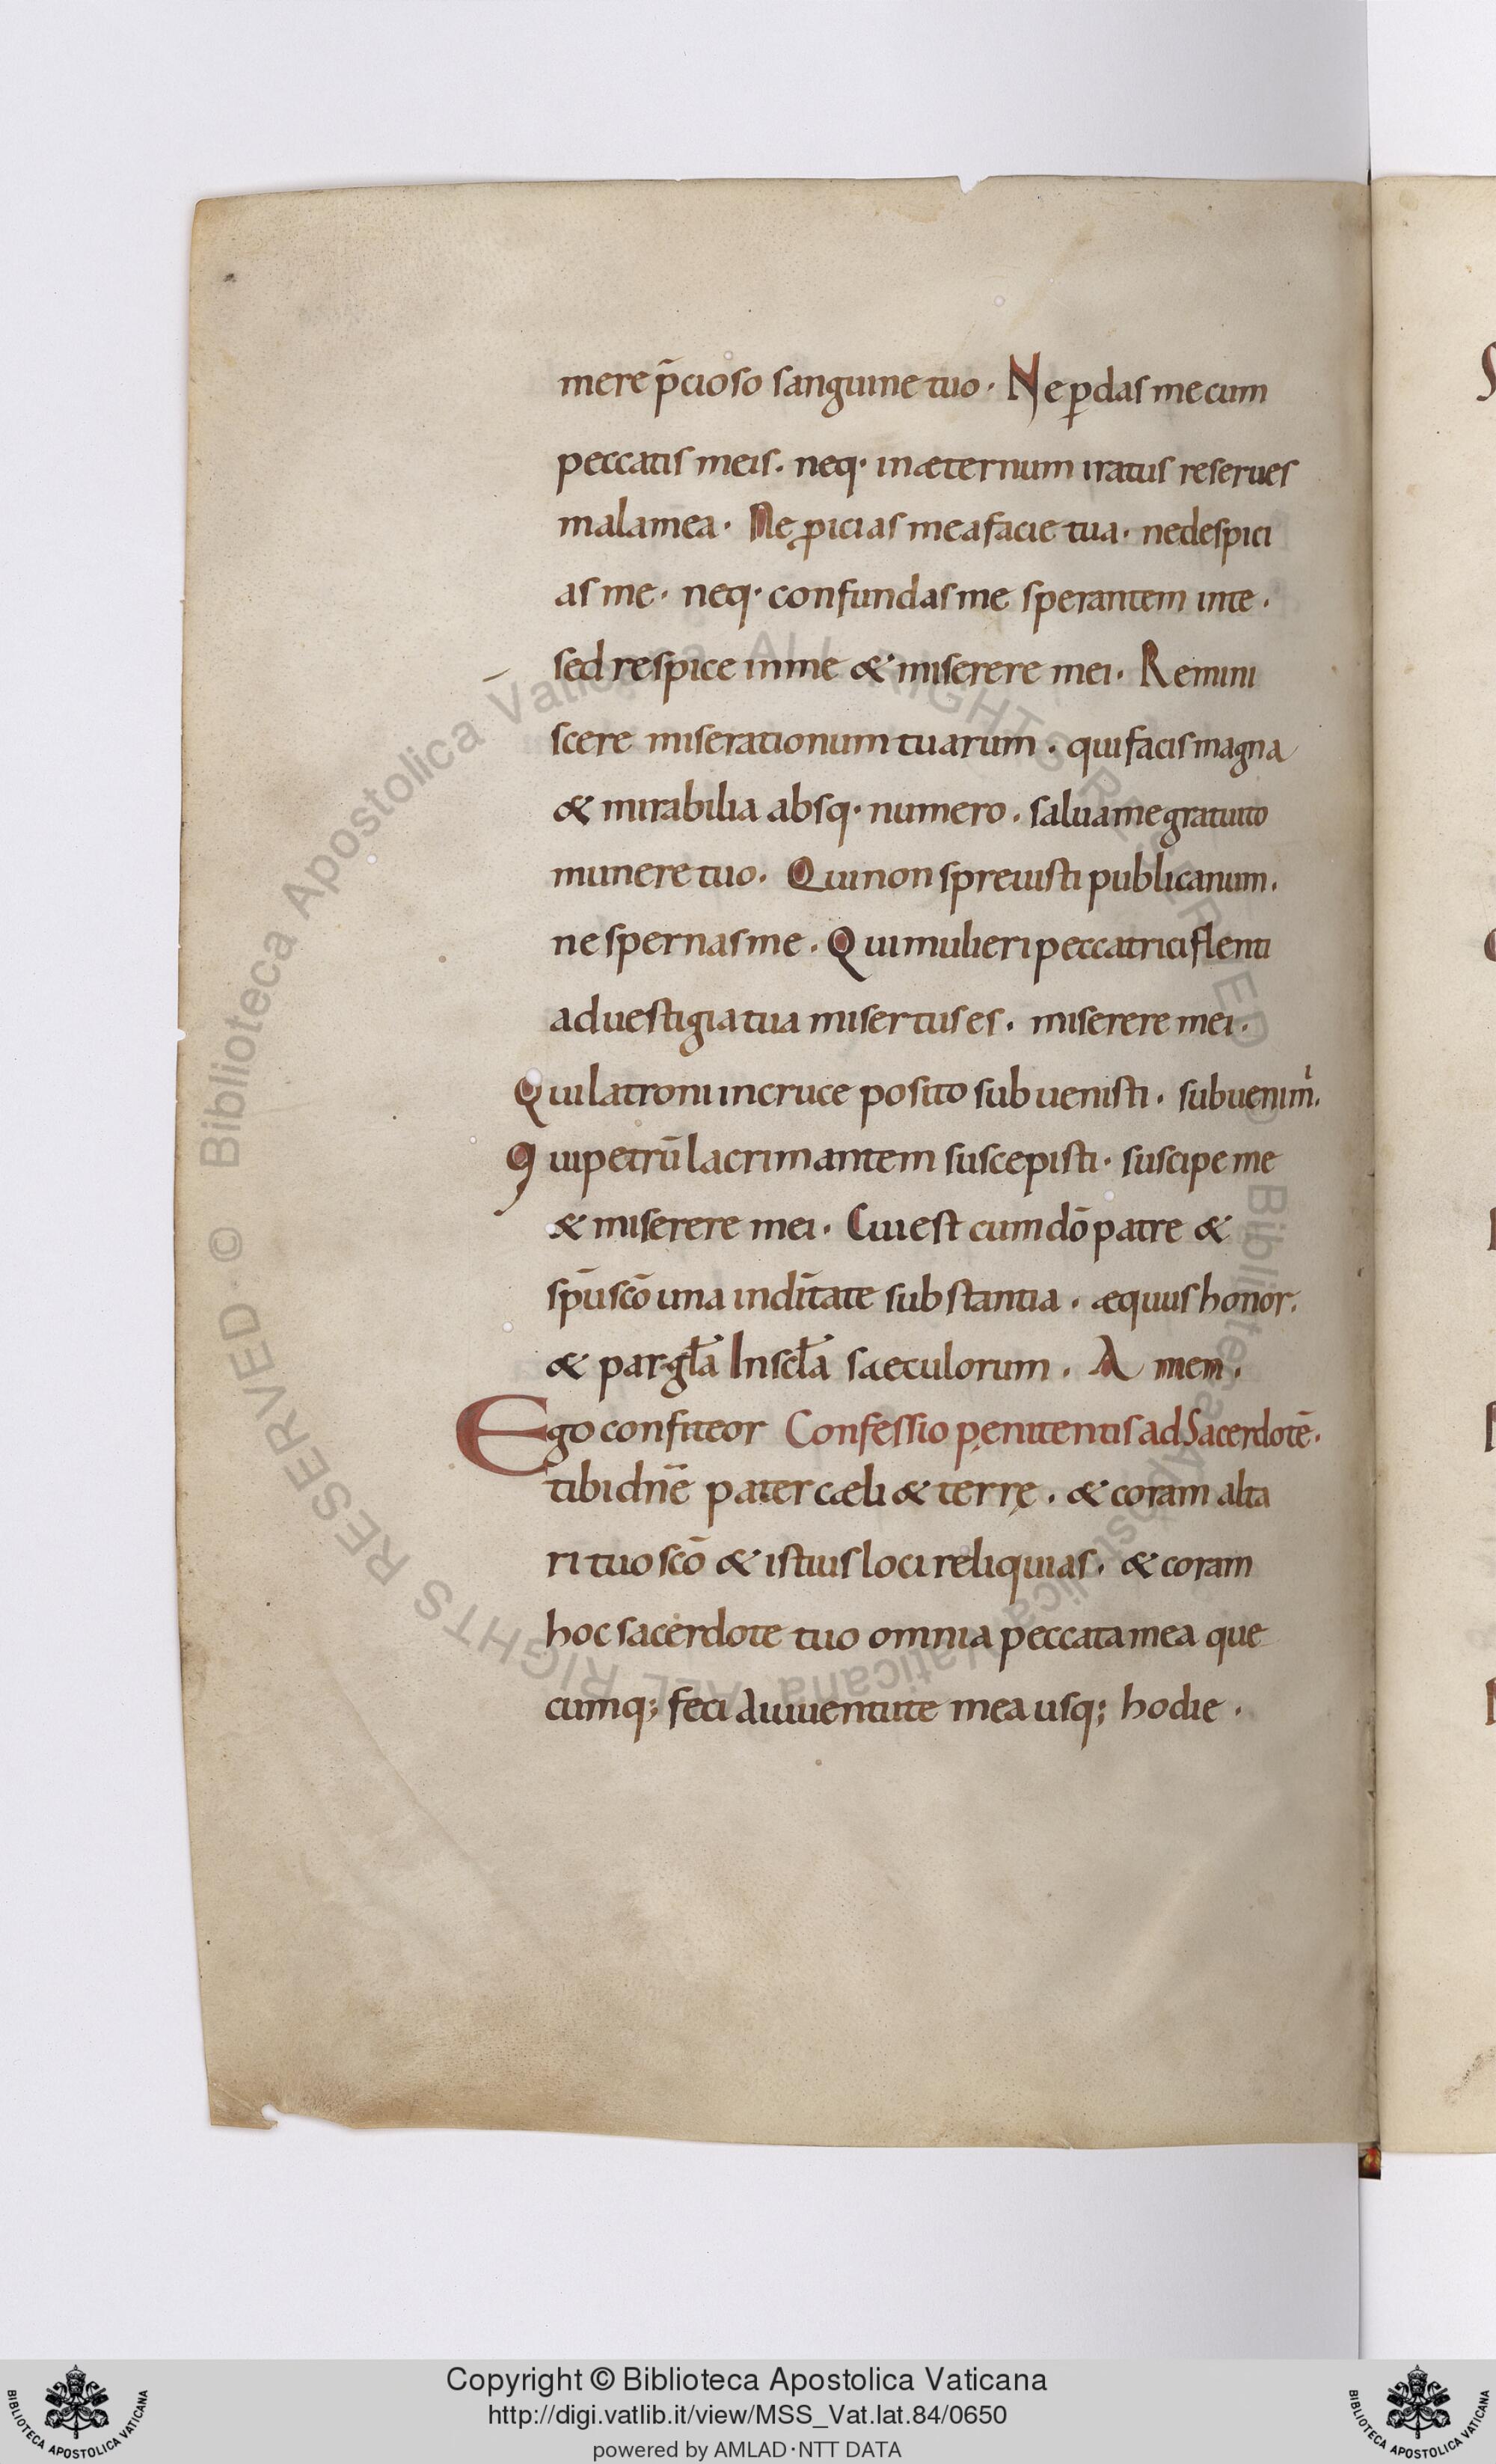 mere p̄cioso sanguine tuo · Ne ꝑdas me cum
peccatis meis. neq· in æternum iratus reserues
mala mea · Ne ꝓicias me a facie tua · ne despici
as me · neq· confundas me sperantem in te ·
sed respice in me & miserere mei · Remini
scere miserationum tuarum · qui facis magna
& mirabilia absq· numero . salua me gratuito
munere tuo · Qui non spreuisti publicanum .
ne spernas me . Qui mulieri peccatrici flenti
ad uestigia tua misertus es . miserere mei ·
Qui latroni in cruce posito sub uenisti . subueni m̍.
Qui petrū lacrimantem suscepisti · suscipe me
& miserere mei · Cui est cum dō patre &
sp̄u scō una in dīтate substantia . æquus honor.
& par gła In scła saeculorum . A men .
Ego confiteor Confessio pęnitentis ad Sacerdotē.
tibi dn̄e pater cæli & terrę . & coram alta
ri tuo scō & istius loci reliquias . & coram
hoc sacerdote tuo omnia peccata mea que
cumq; feci a iuuentute mea usq; hodie .
© Biblioteca Apostolica Vaticana ALL RIGHTS RESERVED · © Biblioteca Apostolica Vaticana ALL RIGHTS RESERVED ·
Copyright © Biblioteca Apostolica Vaticana
http://digi.vatlib.it/view/MSS_Vat.lat.84/0650
powered by AMLAD·NTT DATA
BIBLIOTECA APOSTOLICA VATICANA
BIBLIOTECA APOSTOLICA VATICANA